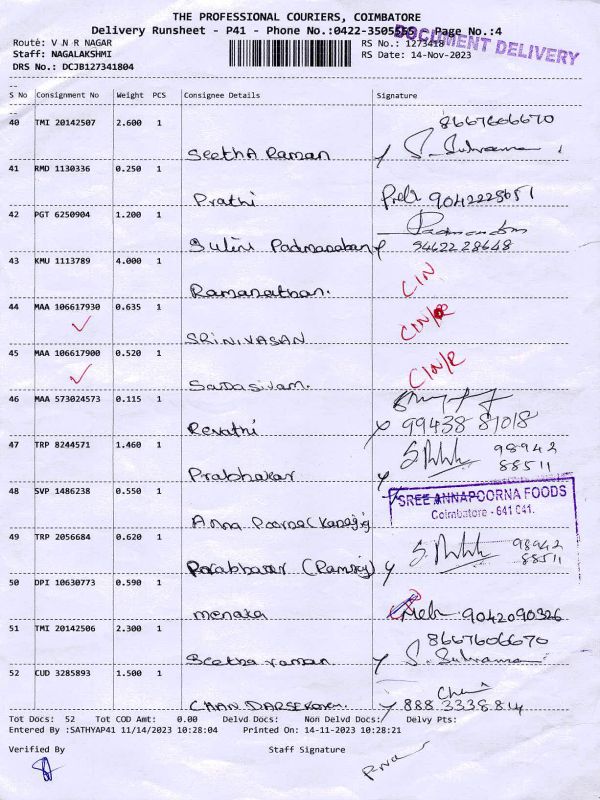 THE PROFESSIONAL COURIERS, COIMBATORE
Delivery Runsheet - P41 - Phone No.:0422-3505555 Page No.:4
DOCUMENT DELIVERY
Route: V N R NAGAR
RS No.: 1273418
Staff: NAGALAKSHMI
RS Date: 14-Nov-2023
DRS No.: DCJB127341804
S No Consignment No Weight PCS Consignee Details Signature
40 TMI 20142507 2.600 1
8667606670
SeethA Raman
41 RMD 1130336 0.250 1
Prathi
9042228651
42 PGT 6250904 1.200 1
Padmanaban
9462228648
43 KMU 1113789 4.000 1
Ramanathan.
CIN
44 MAA 106617930 0.635 1
SRINIVASAN
CIN/R
45 MAA 106617900 0.520 1
Sadasivam.
CIN/R
46 MAA 573024573 0.115 1
Revathi
99438 87018
47 TRP 8244571 1.460 1
98942
88511
Prabhakar
48 SVP 1486238 0.550 1
SREE ANNAPOORNA FOODS
Coimbatore - 641 041.
Anna
49 TRP 2056684 0.620 1
98942
88511
50 DPI 10630773 0.590 1
menaka
9042090326
51 TMI 20142506 2.300 1
8667606670
Seetha raman
52 CUD 3285893 1.500 1
888 3338814
Tot Docs: 52 Tot COD Amt: 0.00 Delvd Docs: Non Delvd Docs: Delvy Pts:
Entered By :SATHYAP41 11/14/2023 10:28:04 Printed On: 14-11-2023 10:28:21
Verified By Staff Signature